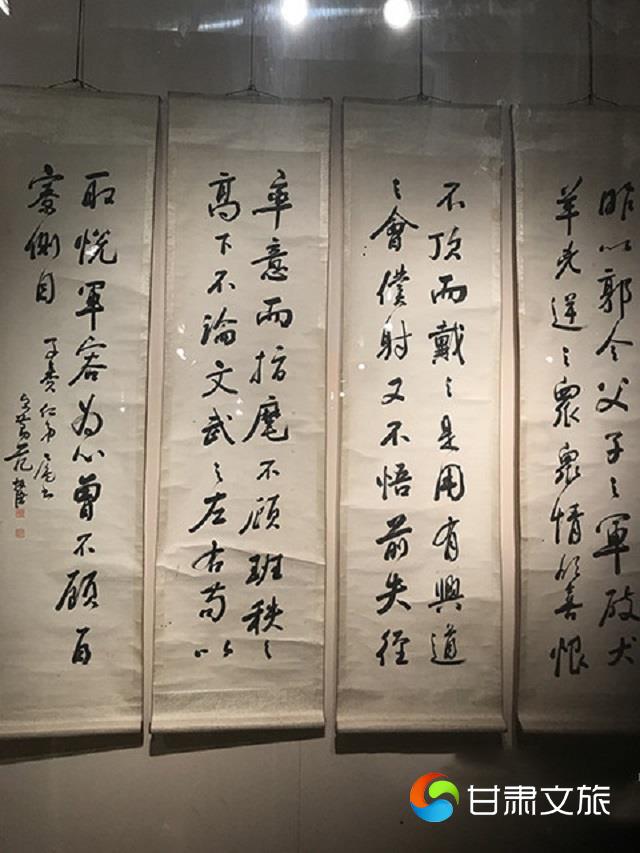 昨以郭令父子之軍破犬
羊兇逆之衆衆情欣喜恨
不頂而戴之是用有興道
之會僕射又不悟前失徑
率意而指麾不顧班秩之
高下不論文武之左右苟以
取悅軍容為心曾不顧百
寮側目
仁弟
范振緒
甘肃文旅